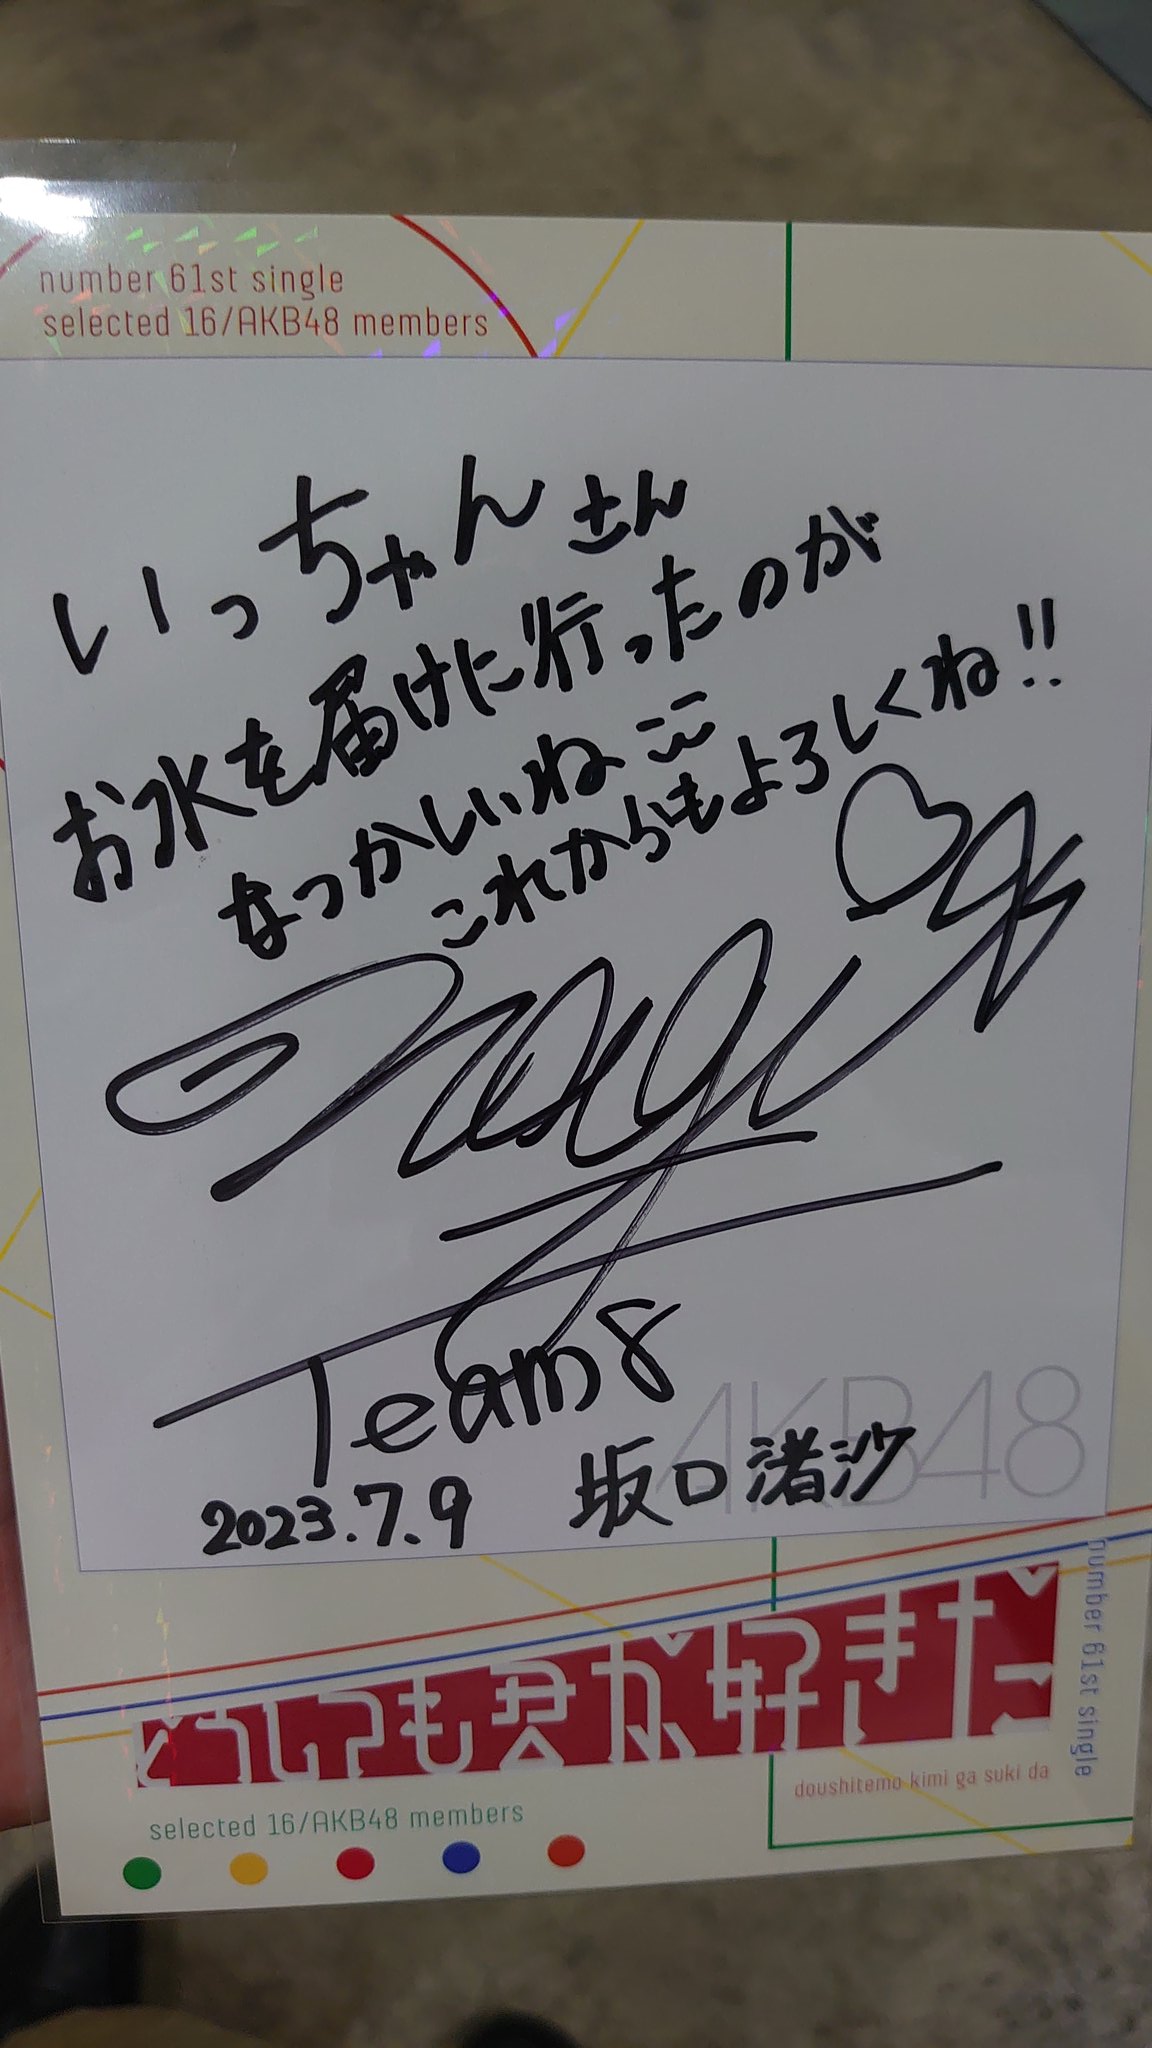 number 61st single
selected 16/AKB48 members
いっちゃんさん
お水を届けに行ったのが
なつかしいね
これからもよろしくね!!
Team8
2023.7.9 坂口渚沙
AKB48
number 61st single
どうしても君が好きだ
doushitemo kimi ga suki da
selected 16/AKB48 members